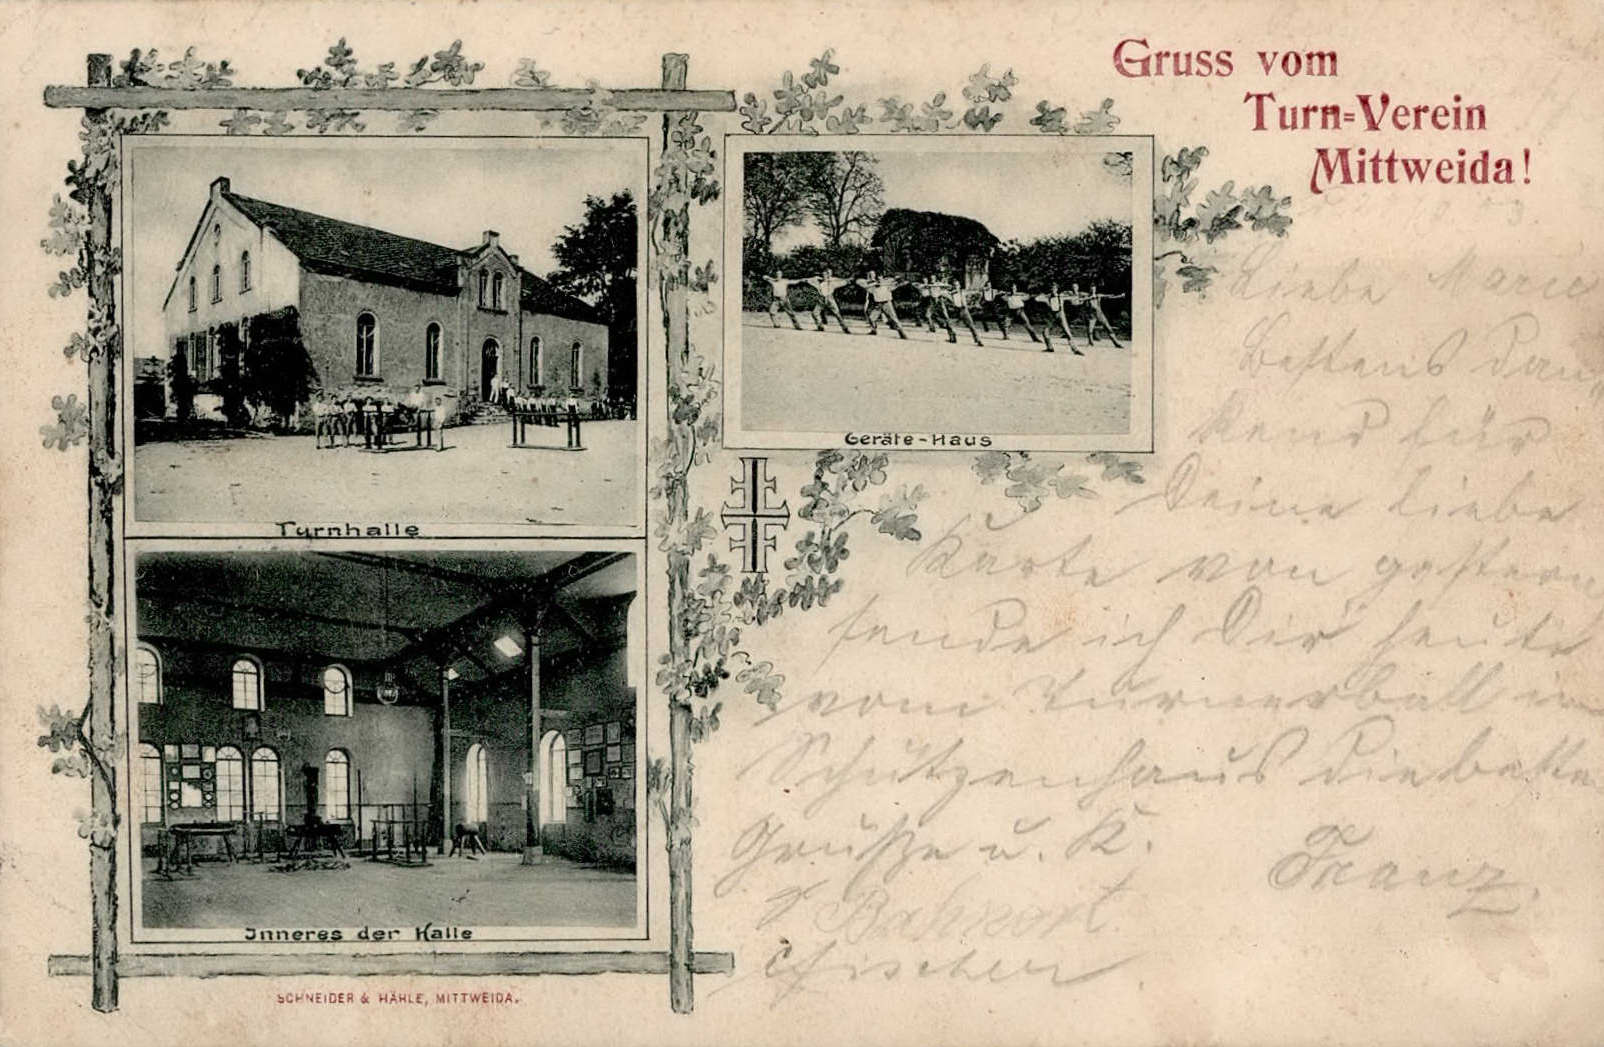 Gruss vom
Turn=Verein
Mittweida!
Turnhalle
Geräte-Haus
Inneres der Halle
SCHNEIDER & HÄHLE, MITTWEIDA.
Liebe Marie
Bestens dan„
kend für
Deine liebe
Karte von gestern
sende ich Dir heute
vom Turnerball im
Schützenhaus die besten
Grüße u. K.
Franz.
Fischer.